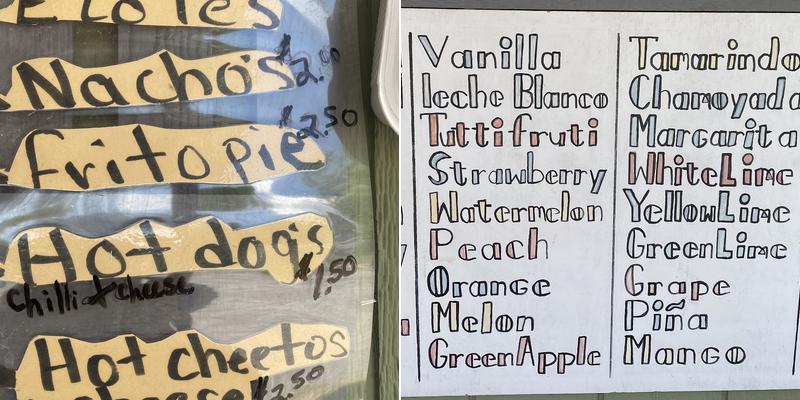 Nachos $2.00
frito pie $2.50
Hot dogs $1.50
chilli & cheese
Hot cheetos
cheese $2.50
Vanilla
leche Blanco
Tuttifruti
Strawberry
Watermelon
Peach
Orange
Melon
GreenApple
Tamarindo
Chamoyada
Margarita
WhiteLime
YellowLime
GreenLime
Grape
Piña
Mango